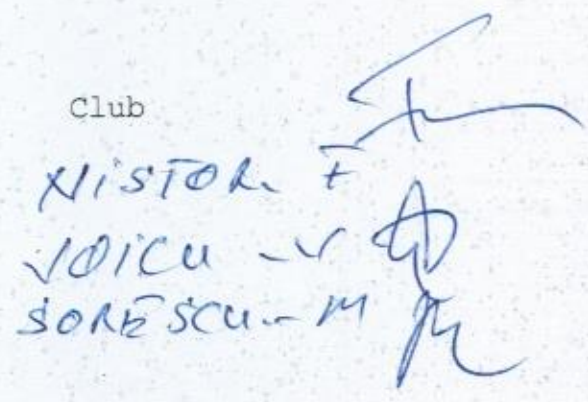 Club
NISTOR. F
VOICU - V
SORESCU - M